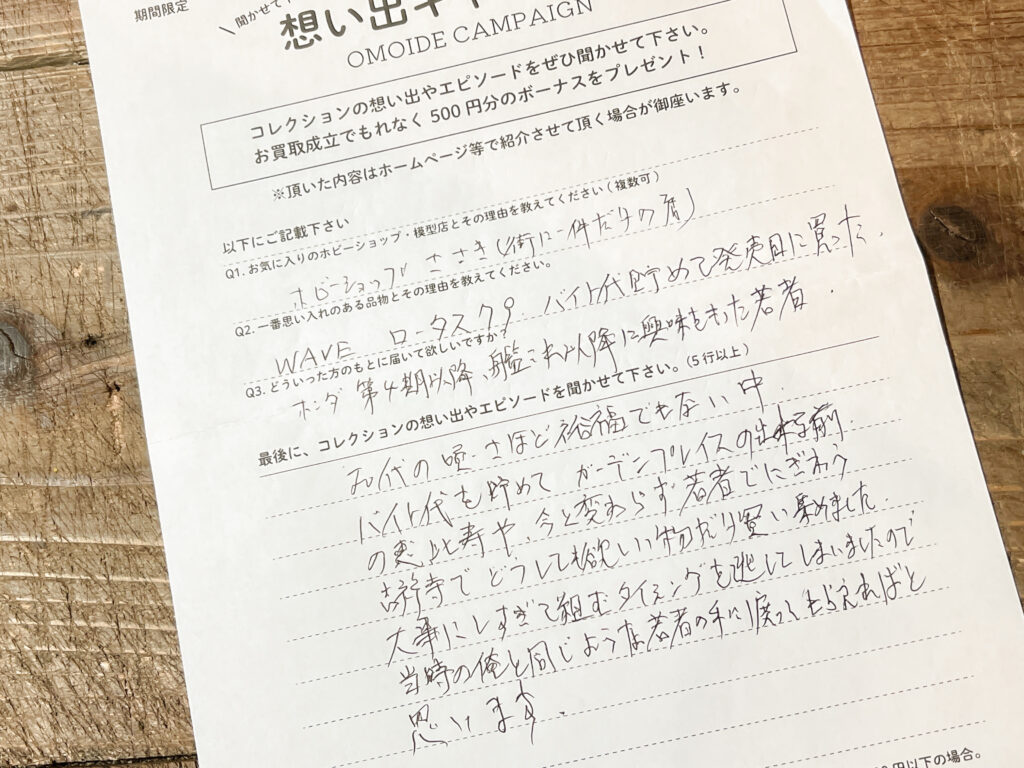 期間限定
聞かせて下
想い出キャ
OMOIDE CAMPAIGN
コレクションの想い出やエピソードをぜひ聞かせて下さい。
お買取成立でもれなく500円分のボーナスをプレゼント！
※頂いた内容はホームページ等で紹介させて頂く場合が御座います。
以下にご記載下さい
Q1. お気に入りのホビーショップ・模型店とその理由を教えてください（複数可）
ホビーショップ ささき（街に一件だけの店）
Q2. 一番思い入れのある品物とその理由を教えてください。
WAVE ロータス79. バイト代貯めて発売日に買った.
Q3. どういった方のもとに届いて欲しいですか？
ホンダ 第4期以降、艦これ以降に興味をもった若者.
最後に、コレクションの想い出やエピソードを聞かせて下さい。（5行以上）
代の頃 さほど裕福でもない中.
バイト代を貯めて ガーデンプレイスの出来る前
の恵比寿や、今と変わらず若者でにぎわう
吉祥寺で どうしても欲しい物だけ買い集めました.
大事にしすぎて組むタイミングを逃してしまいましたので
当時の俺と同じような若者の手に渡ってもらえればと
思います.
円以下の場合。